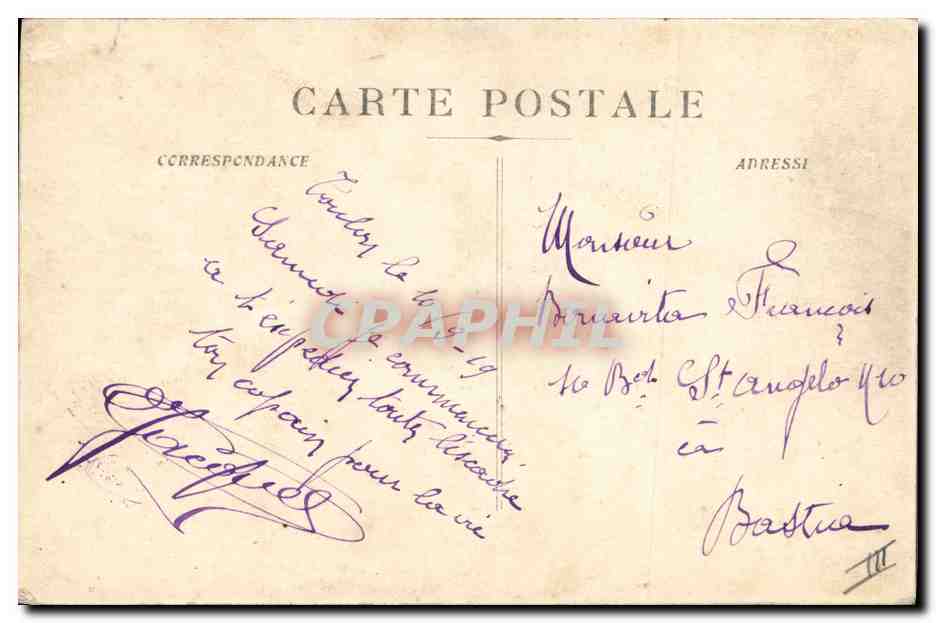 CARTE POSTALE
CORRESPONDANCE
ADRESSE
Toulon le 10-12-19
Samedi Je commencerai
a t'expedier toute l'escadre
ton copain pour la vie
Jacques
Monsieur
François
10 Bd St Angelo
à
Bastia
CPAPHIL
III